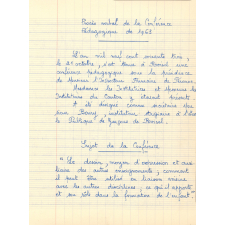 Procès verbal de la Conférence
Pédagogique de 1963
L'an mil neuf cent soixante trois,
le 25 octobre, s'est tenue à
conférence pédagogique sous la présidence
de Monsieur l'Inspecteur Primaire de
Mesdames les Institutrices et Messieurs les
Instituteurs du Canton y étaient présents.
A été désigné comme secrétaire
instituteur à l'école
Publique de Garçons de
Sujet de la Conférence
"Le dessin, moyen d'expression et aux
liaire des autres enseignements, comment
il peut être utilisé en liaison intime
avec les autres disciplines, ce qu'il apporte
et son rôle dans la formation de l'enfant".